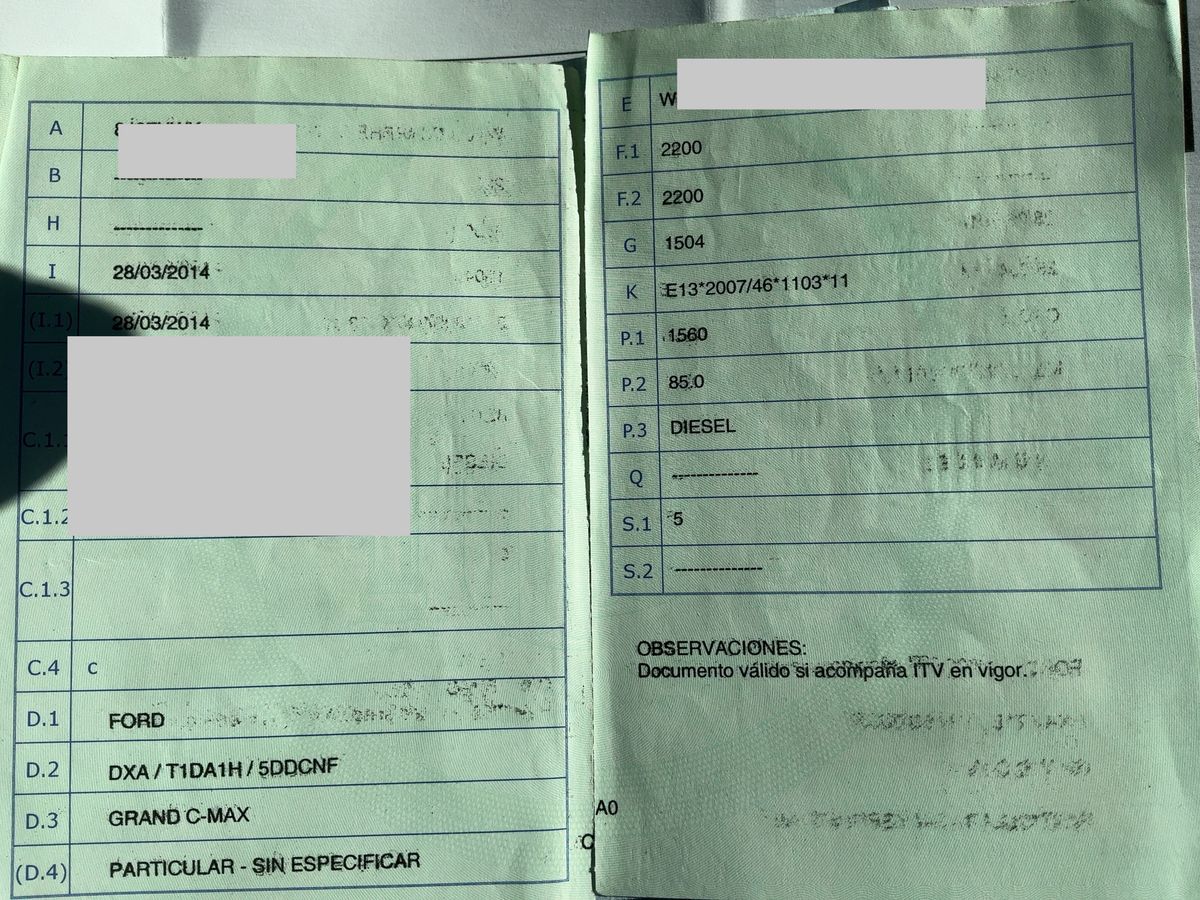 A
B
H --------------
I 28/03/2014
(I.1) 28/03/2014
(I.2)
C.1.1
C.1.2
C.1.3
C.4 c
D.1 FORD
D.2 DXA / T1DA1H / 5DDCNF
D.3 GRAND C-MAX
(D.4) PARTICULAR - SIN ESPECIFICAR
E W
F.1 2200
F.2 2200
G 1504
K E13*2007/46*1103*11
P.1 1560
P.2 85.0
P.3 DIESEL
Q --------------
S.1 5
S.2 --------------
OBSERVACIONES:
Documento válido si acompaña ITV en vigor.
A0
C